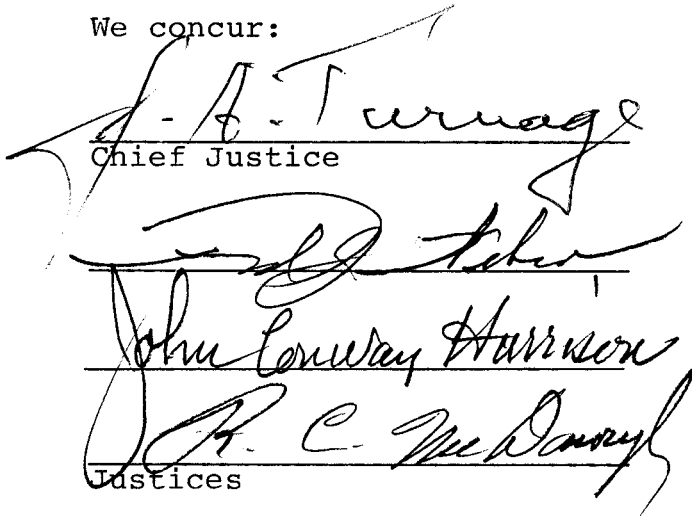 We concur:
J. A. Turnage
Chief Justice
John Conway Harrison
R. C. McDonough
Justices